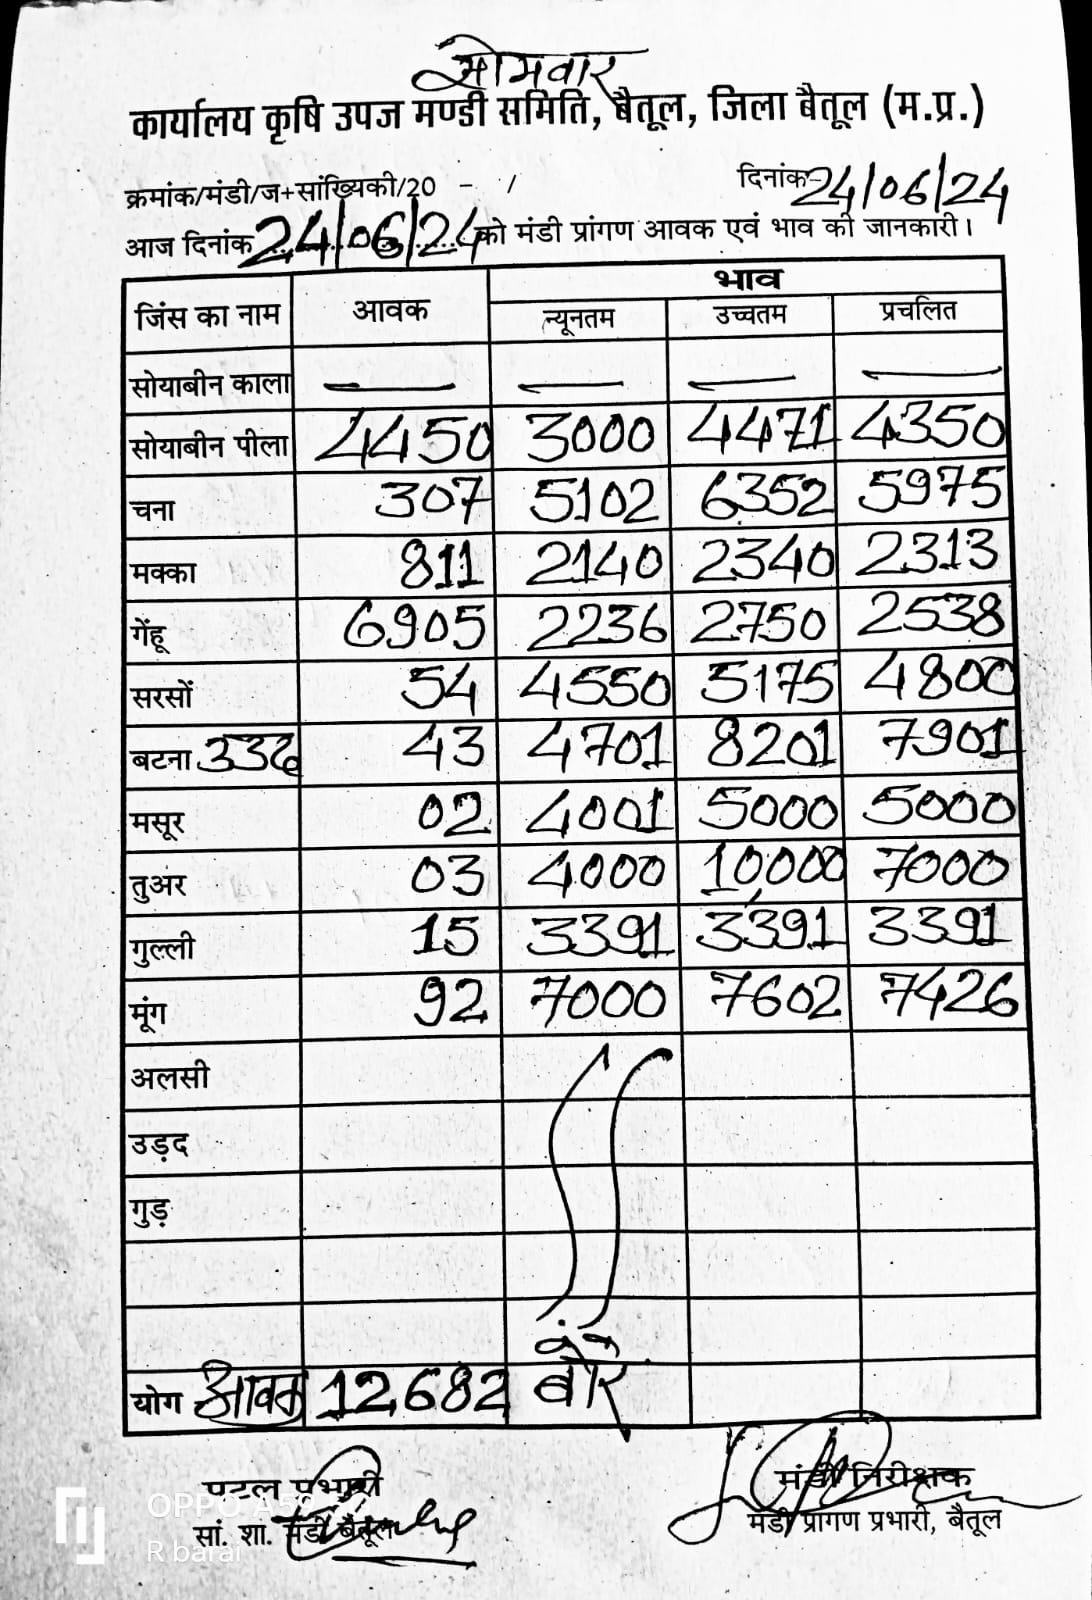 सोमवार
कार्यालय कृषि उपज मण्डी समिति, बैतूल, जिला बैतूल (म.प्र.)
क्रमांक/मंडी/ज+सांख्यिकी/20 - /
दिनांक-24/06/24
आज दिनांक 24/06/24 को मंडी प्रांगण आवक एवं भाव की जानकारी।
जिंस का नाम आवक भाव
न्यूनतम उच्चतम प्रचलित
सोयाबीन काला — — — —
सोयाबीन पीला 4450 3000 4471 4350
चना 307 5102 6352 5975
मक्का 811 2140 2340 2313
गेंहू 6905 2236 2750 2538
सरसों 54 4550 5175 4800
बटना 43 4701 8201 7901
मसूर 02 4001 5000 5000
तुअर 03 4000 10,000 7000
गुल्ली 15 3391 3391 3391
मूंग 92 7000 7602 7426
अलसी
उड़द
गुड़
योग आवक 12682 बोरे
पटल प्रभारी
सां. शा. मंडी बैतूल
मंडी निरीक्षक
मंडी प्रांगण प्रभारी, बैतूल
OPPO A52
R barai